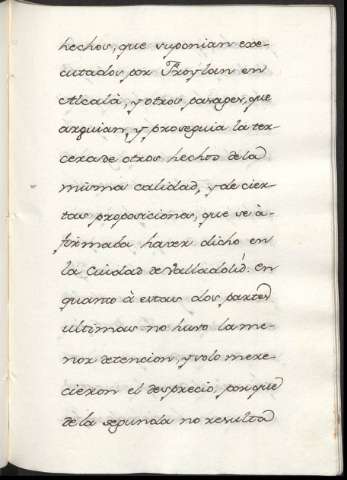 hechos, que suponian exe-
cutados por Froylan en
Alcalà, y otros parages, que
arguian, y proseguia la ter-
cera de otros hechos de la
misma calidad, y de cier-
tas proposiciones, que se à-
firmada haver dicho en
la Cuidad de Valladolid. en
quanto à estas dos partes
ultimas no huvo la me-
nor detencion, y solo mere-
cieron el desprecio, porque
de la segunda no resulta